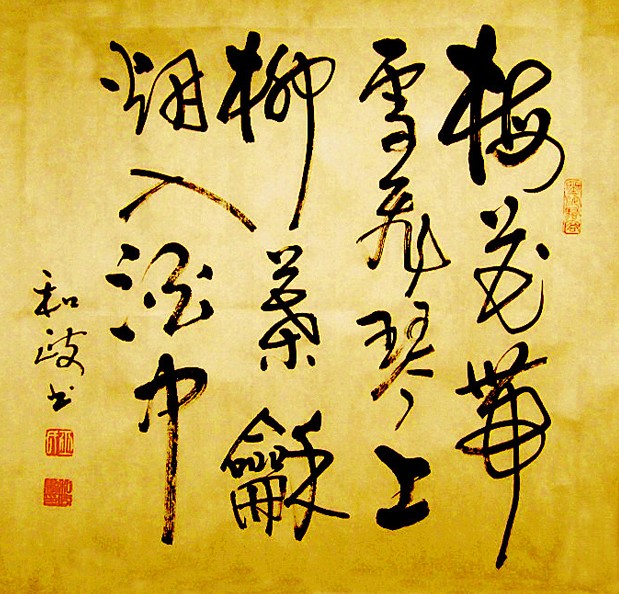 梅花帶
雪飛琴上
柳葉龢
烟入酒中
和政书